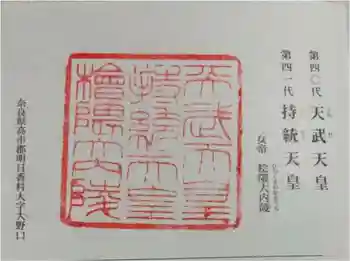 第四〇代 天武天皇
第四一代 持統天皇
女帝 桧隈大内陵
天武天皇
持統天皇
檜隈大内陵
奈良県高市郡明日香村大字野口